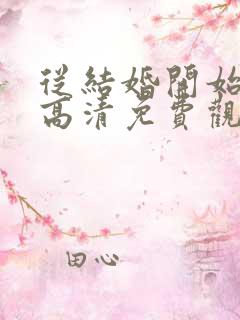 從結婚開始
高清免費觀
田心